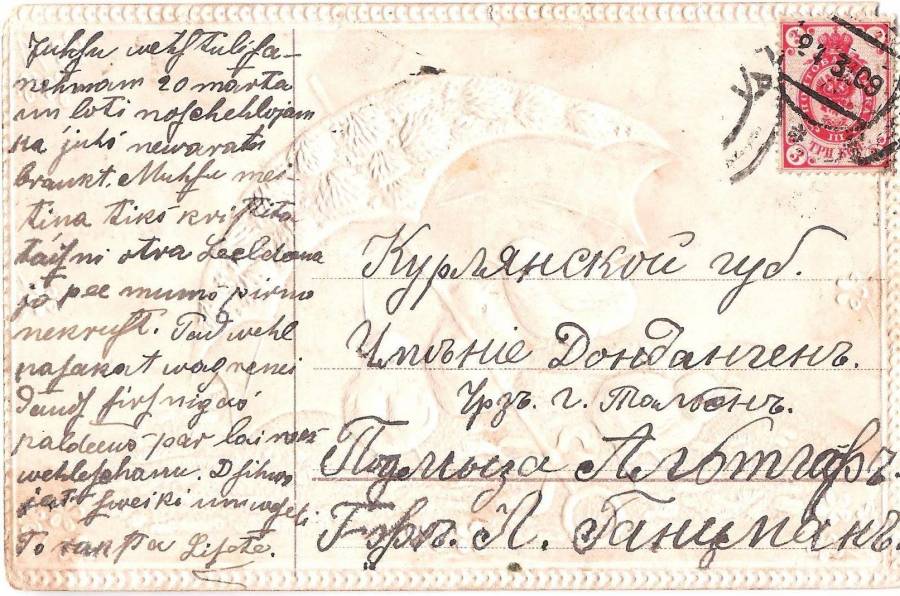 Juhsu wehstuli sa-
nehmam 20 marta
un loti noschehlojam
ka juhs newarat
braukt. Muhsu mei-
tina tiks kristita
taisni otra Leeldeena
jo pee mums pirmo
nekrust. Tad wehl
pasakat wagrenei
daudz sirsnigas
paldeews par lai
wehleschanu. Dsihwo
jat sweiki un weseli
To Lisete.
21.3.09
3
ТРИ КОП
Курлянской губ.
Имѣніе Донданген
Чрзъ. г. Тальсенъ.
Подмыза Альтгофъ.
Л. Ганцманъ